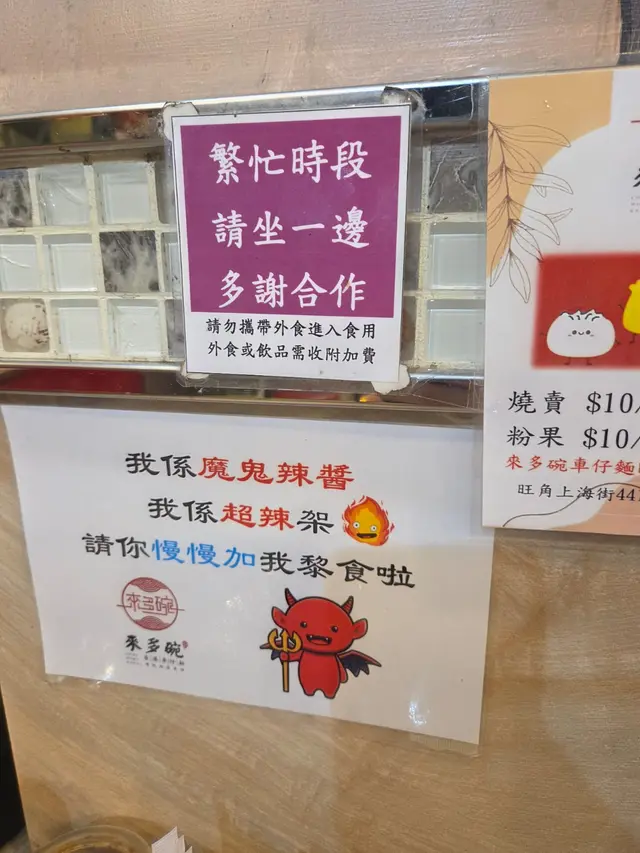 繁忙時段
請坐一邊
多謝合作
請勿攜帶外食進入食用
外食或飲品需收附加費
我係魔鬼辣醬
我係超辣架
請你慢慢加我黎食啦
來多碗
來多碗
燒賣 $10/
粉果 $10/
來多碗車仔麵
旺角上海街44